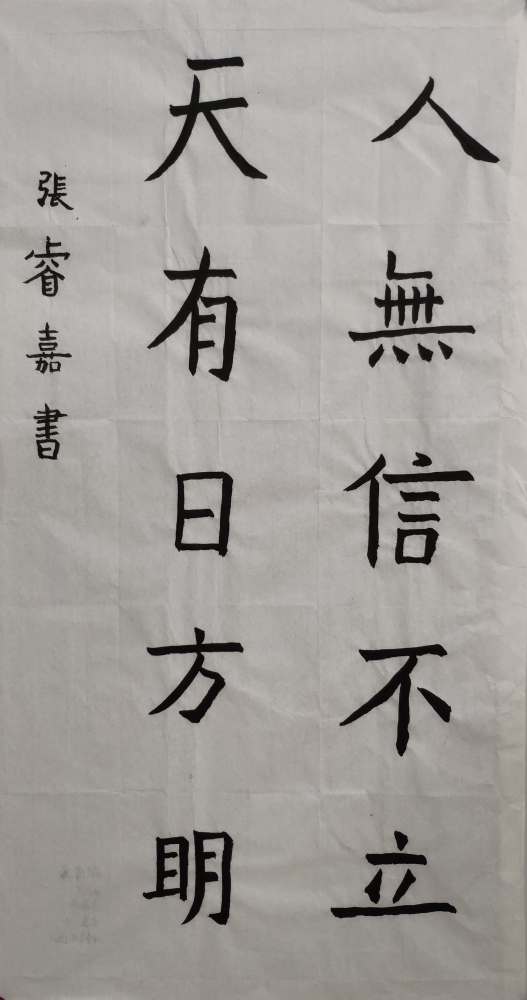 人無信不立
天有日方明
張睿嘉書